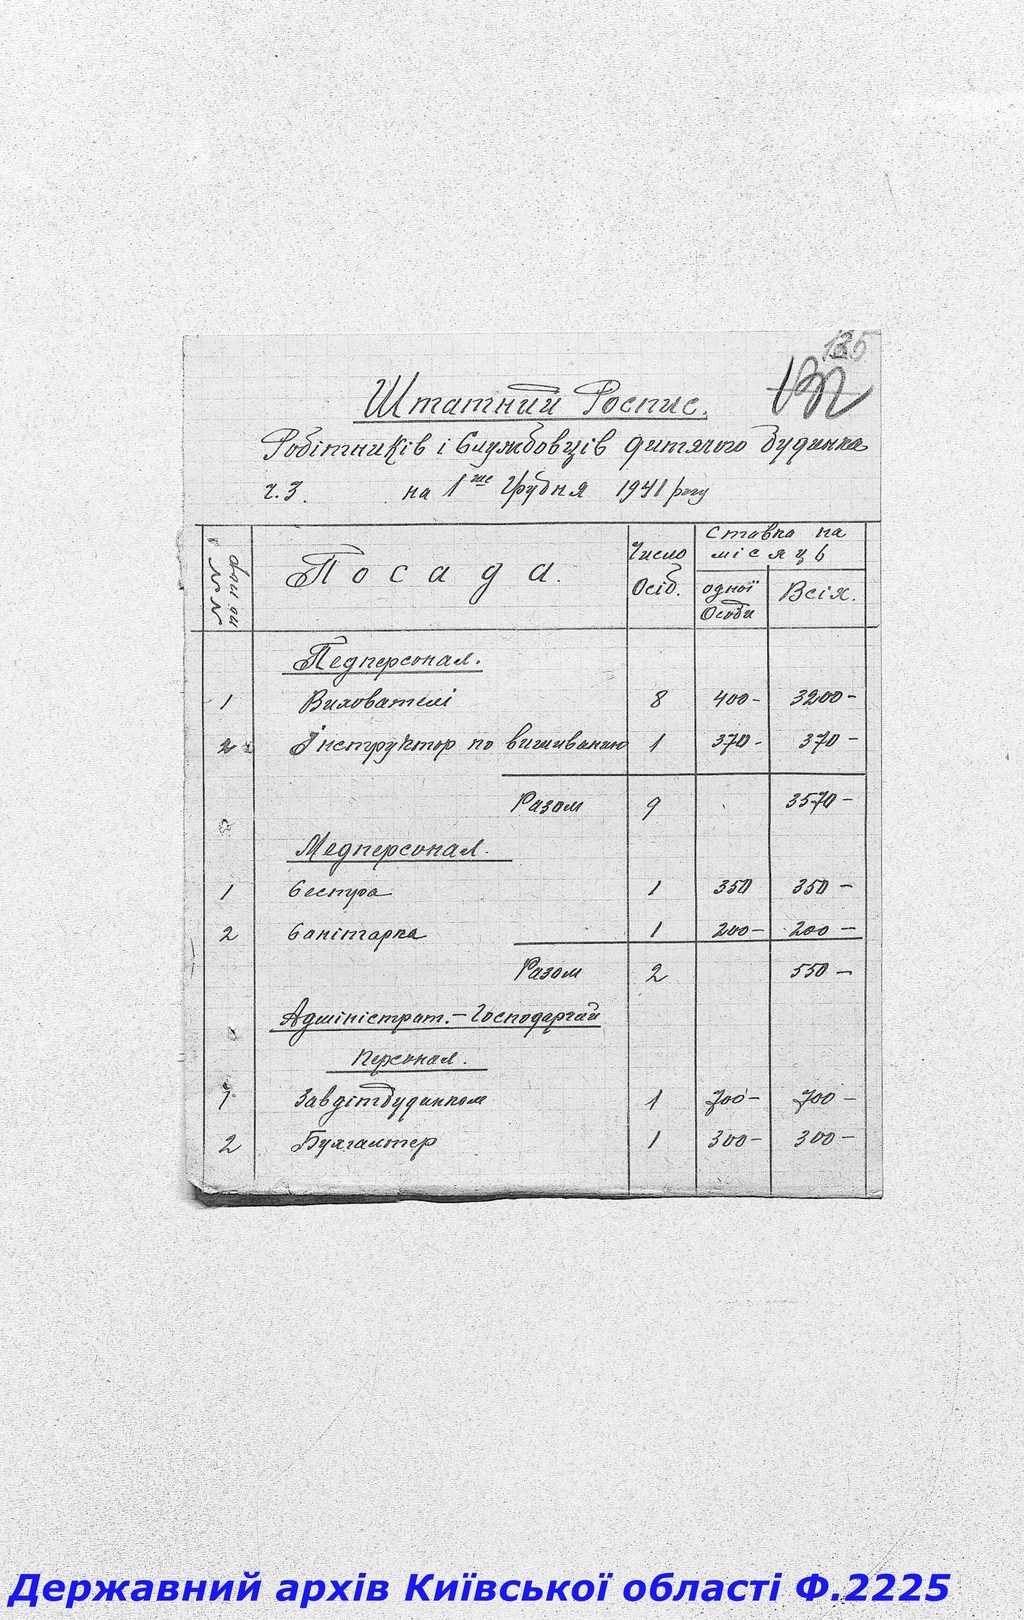 135
132
Штатний Роспис.
Робітників і Службовців дитячого будинка
ч. 3. на 1ше Грудня 1941 року
№№ по пор.
Посада.
Число Осіб.
Ставка на місяць
одної Особи
Всія.
Педперсонал.
1 Вихователі 8 400- 3200-
2 Інструктор по вишиванню 1 370- 370-
Разом 9 3570-
Медперсонал.
1 Сестра 1 350 350-
2 Санітарка 1 200- 200-
Разом 2 550-
Адміністрат.-Господарчий
персонал.
1 Завдітбудинком 1 700- 700-
2 Бухгалтер 1 300- 300-
Державний архів Київської області Ф.2225